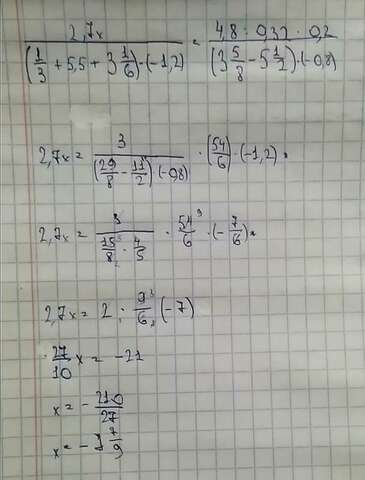 2,7x / ((1/3 + 5,5 + 3 1/6) · (-1,2)) = (4,8 : 0,32 · 0,2) / ((3 5/8 - 5 1/2) · (-0,8))
2,7x = 3 / ((29/8 - 11/2) · (-0,8)) · (54/6) · (-1,2)
2,7x = 3 / (15/8 · 4/5) · 54/6 · (-7/6)
2,7x = 2 · 9/6 (-7)
27/10 x = -21
x = - 210/27
x = - 7 7/9